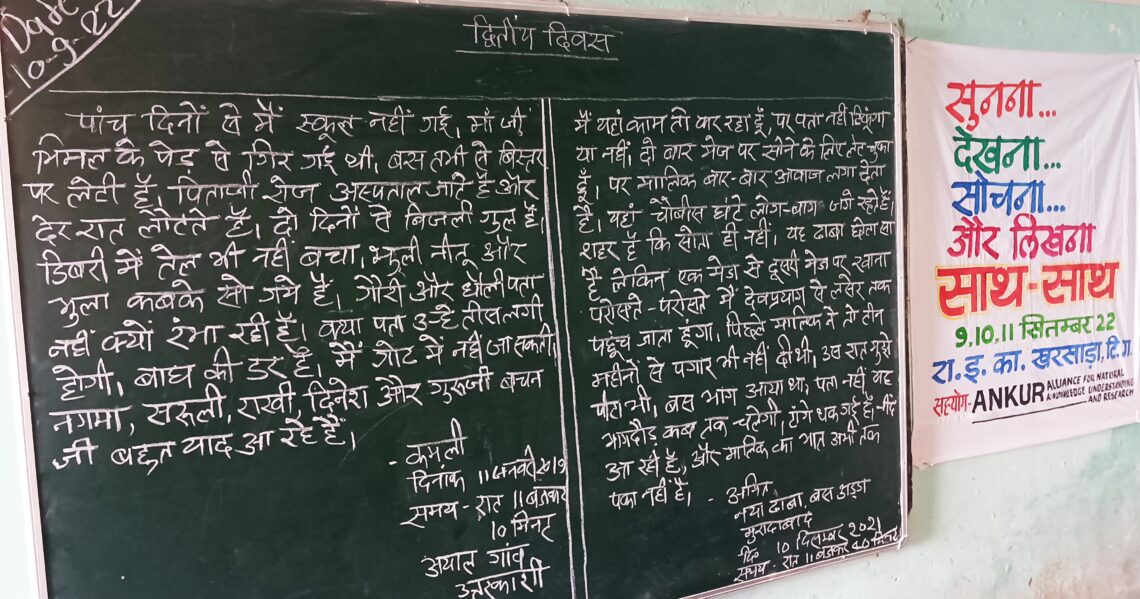 Date
10-9-22
द्वितीय दिवस
पांच दिनों से मैं स्कूल नहीं गई, माँ जी
भिमल के पेड़ से गिर गई थी, बस तभी से बिस्तर
पर लेटी हैं, पिताजी रोज अस्पताल जाते हैं और
देर रात लौटते हैं। दो दिनों से बिजली गुल है।
डिबरी में तेल भी नहीं बचा, झुली नीतू और
भुला कबके सो गये हैं। गौरी और धौली पता
नहीं क्यों रंभा रही हैं। क्या पता उन्हें तीस लगी
होगी, बाघ की डर है। मैं गोट में नहीं जा सकती,
नगमा, सरुली, राखी, दिनेश और गुरुजी बचन
जी बहुत याद आ रहे हैं।
- कमली
दिनांक 11 जनवरी 2019
समय - रात 11 बजकर
10 मिनट
अयाल गांव
उत्तरकाशी
मैं यहां काम तो कर रहा हूँ, पर पता नहीं टिकूंगा
या नहीं, दो बार मेज पर सोने के लिए लेट चुका
हूँ, पर मालिक बार-बार आवाज लगा देता
है। यहां चौबीस घंटे लोग-बाग जगे रहते हैं,
शहर है कि सोता ही नहीं। यह ढाबा छोटा सा
है लेकिन एक मेज से दूसरी मेज पर खाना
परोसते-परोसते मैं देवप्रयाग से लसेर तक
पहुंच जाता हूंगा, पिछले मालिक ने तो तीन
महीनों से पगार भी नहीं दी थी, उस रात मुझे
पता भी, बस भाग आया था, पता नहीं यह
भागदौड़ कब तक चलेगी, टांगे थक गई हैं, नींद
आ रही है, और मालिक का भात अभी तक
पका नहीं है।
- अमित
नया ढाबा, बस अड्डा
मुरादाबाद
दि० 10 दिसम्बर 2021
समय - रात 11 बजकर 40 मिनट
सुनना...
देखना...
सोचना...
और लिखना
साथ-साथ
9,10,11 सितम्बर 22
रा.इ.का. खरसाड़ा, टि.ग.
सहयोग- ANKUR ALLIANCE FOR NATURAL
KNOWLEDGE UNDERSTANDING
AND RESEARCH